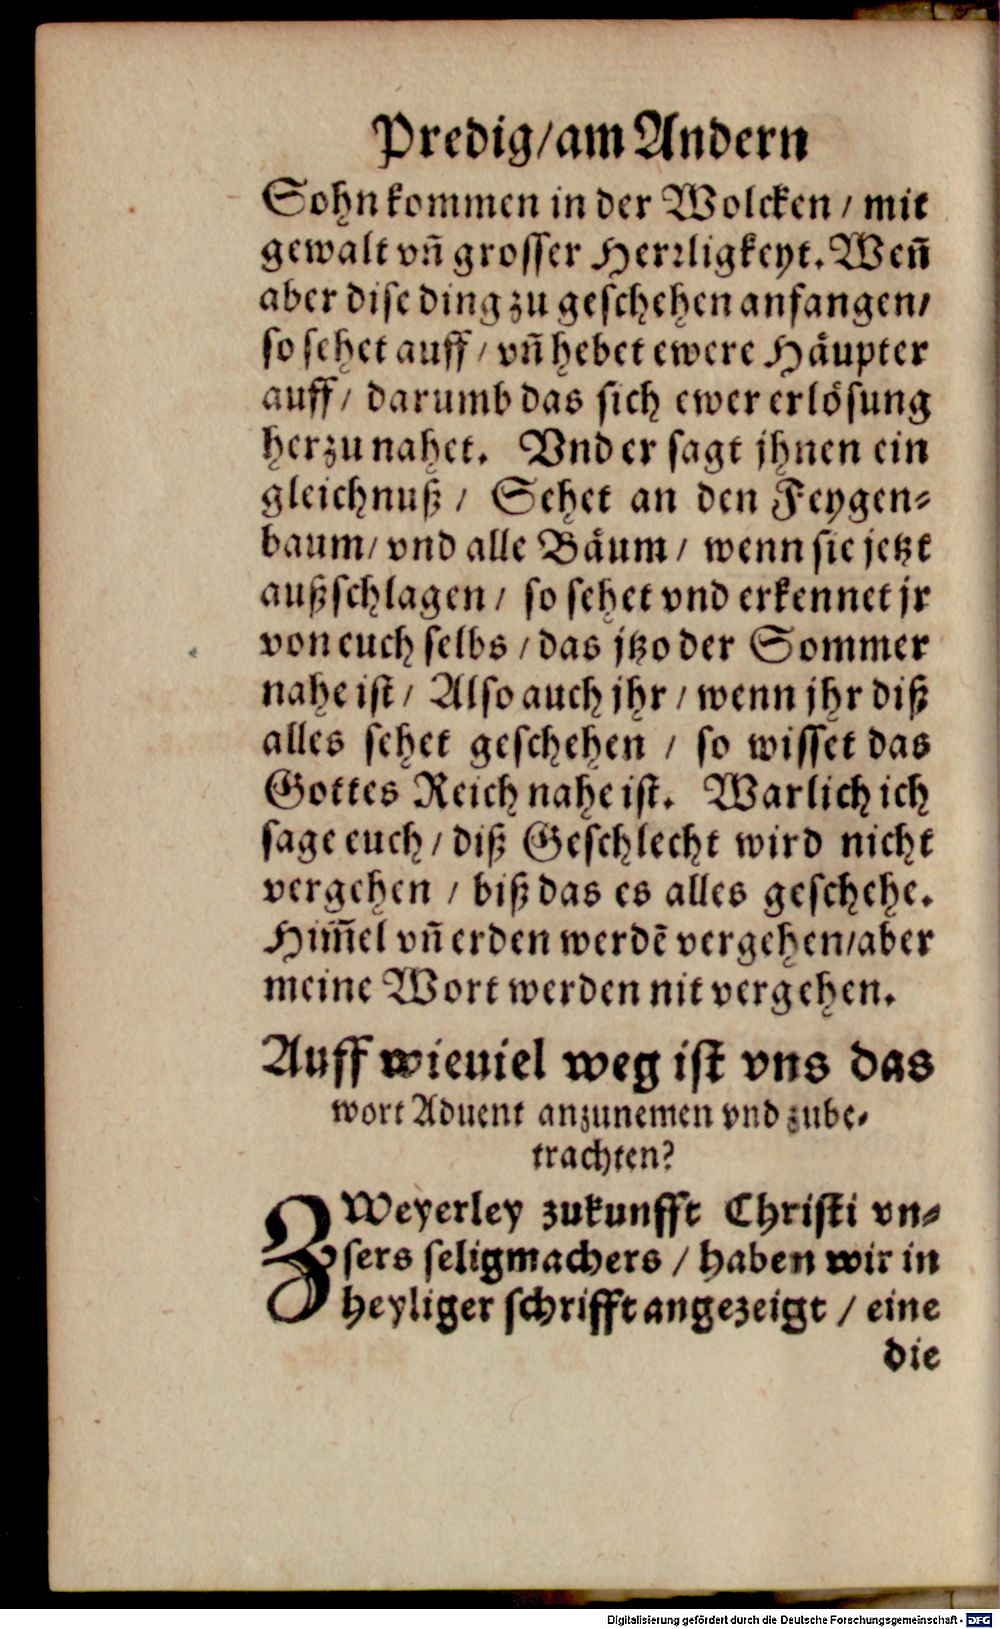 Predig/am Andern
Sohn kommen in der Wolcken / mit
gewalt vn̄ grosser Herꝛligkeyt. Wen̄
aber dise ding zu geschehen anfangen/
so sehet auff / vn̄ hebet ewere Häupter
auff / darumb das sich ewer erlösung
herzu nahet. Vnd er sagt jhnen ein
gleichnuß / Sehet an den Feygen⸗
baum/ vnd alle Bäum / wenn sie jetzt
außschlagen / so sehet vnd erkennet jr
von euch selbs / das jtzo der Sommer
nahe ist / Also auch jhr / wenn jhr diß
alles sehet geschehen / so wisset das
Gottes Reich nahe ist. Warlich ich
sage euch / diß Geschlecht wird nicht
vergehen / biß das es alles geschehe.
Him̄el vn̄ erden werdē vergehen/aber
meine Wort werden nit vergehen.
Auff wieuiel weg ist vns das
wort Aduent anzunemen vnd zube⸗
trachten?
ZWeyerley zukunfft Christi vn⸗
sers seligmachers / haben wir in
heyliger schrifft angezeigt / eine
die
Digitalisierung gefördert durch die Deutsche Forschungsgemeinschaft - DFG